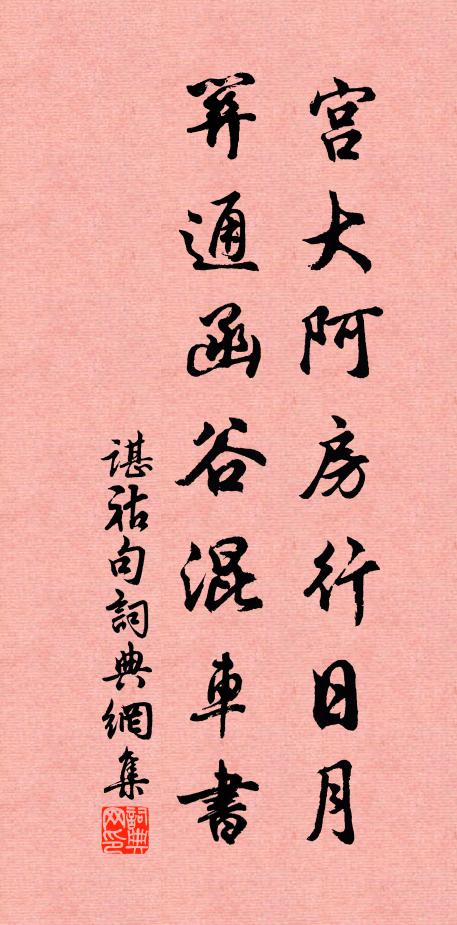 宮大阿房行日月
關通函谷混車書
諶祜句詞典網集
詞典网印